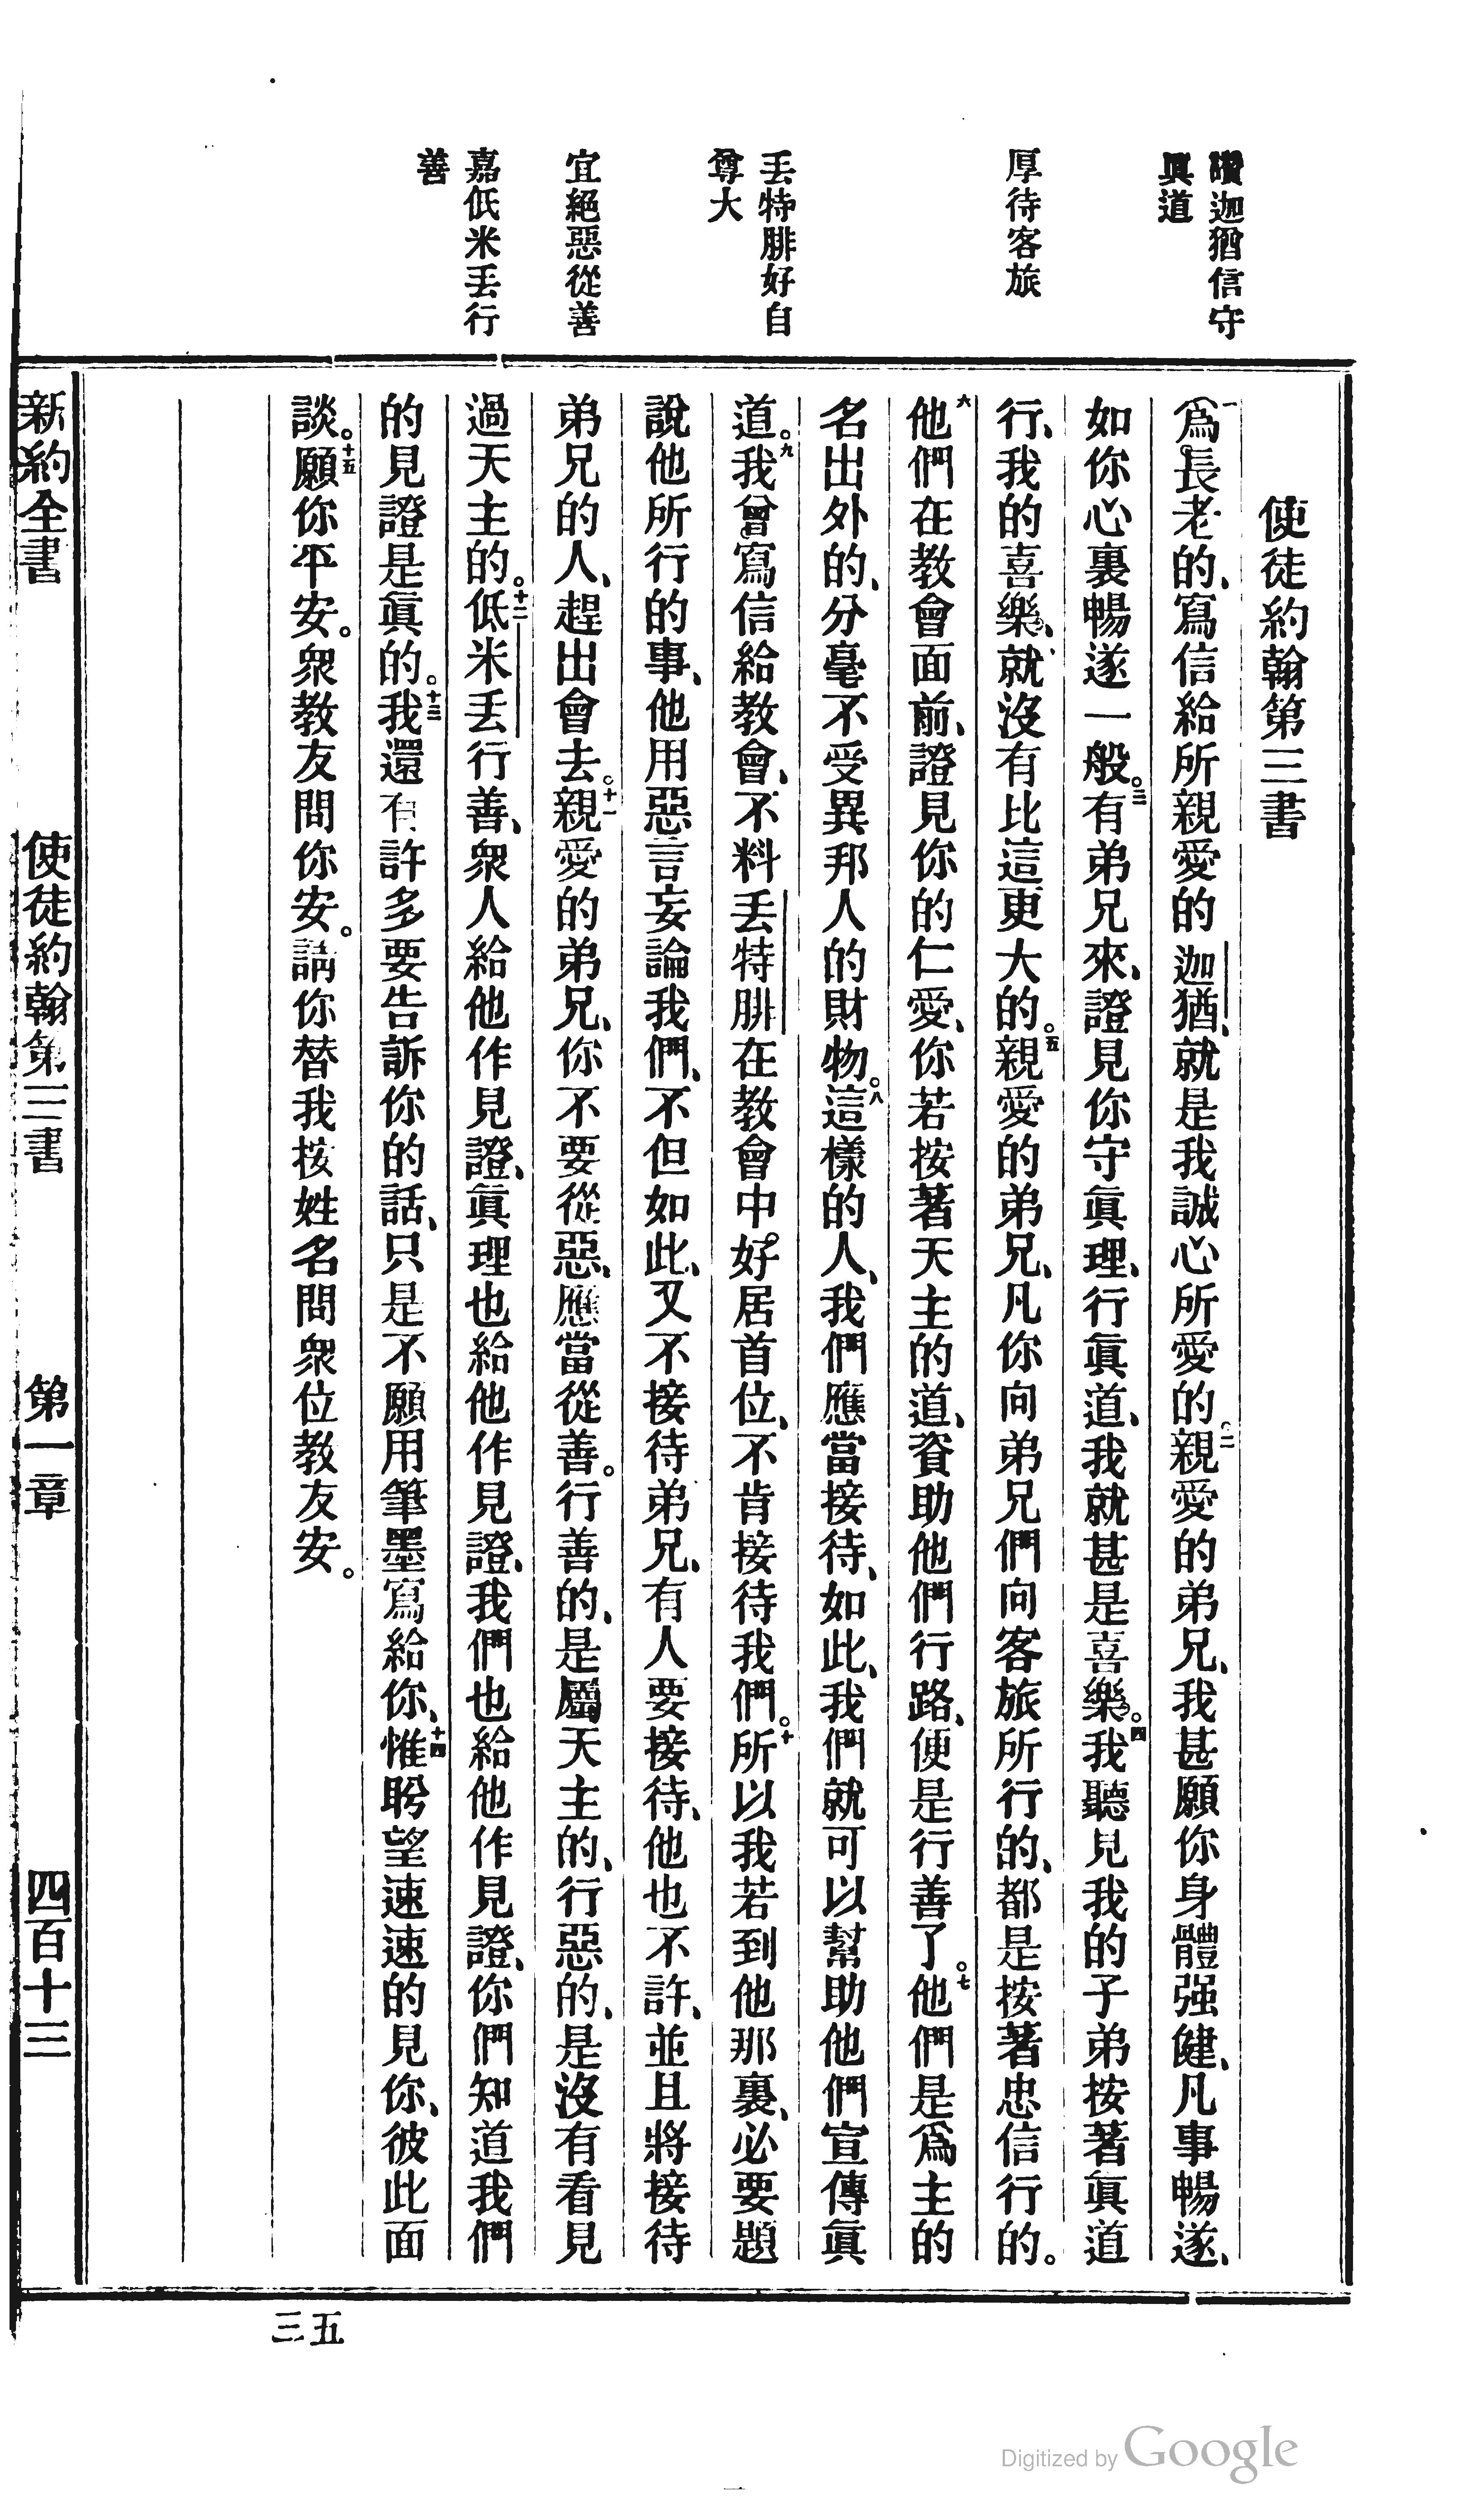 讚迦猶信守
眞道
厚待客旅
丢特腓好自
尊大
宜絕惡從善
嘉低米丢行
善
使徒約翰第三書
一爲長老的、寫信給所親愛的迦猶、就是我誠心所愛的。二親愛的弟兄、我甚願你身體强健、凡事暢遂、
如你心裏暢遂一般。三有弟兄來、證見你守眞理、行眞道、我就甚是喜樂。四我聽見我的子弟按著眞道
行、我的喜樂、就沒有比這更大的。五親愛的弟兄、凡你向弟兄們向客旅所行的、都是按著忠信行的。
六他們在教會面前、證見你的仁愛、你若按著天主的道、資助他們行路、便是行善了。七他們是爲主的
名出外的、分毫不受異邦人的財物。八這樣的人、我們應當接待、如此、我們就可以幫助他們宣傳眞
道。九我曾寫信給教會、不料丢特腓在教會中好居首位、不肯接待我們。十所以我若到他那裏、必要題
說他所行的事、他用惡言妄論我們、不但如此、又不接待弟兄、有人要接待、他也不許、並且將接待
弟兄的人、趕出會去。十一親愛的弟兄、你不要從惡、應當從善。行善的、是屬天主的、行惡的、是沒有看見
過天主的。十二低米丢行善、衆人給他作見證、眞理也給他作見證、我們也給他作見證、你們知道我們
的見證是眞的。十三我還有許多要告訴你的話、只是不願用筆墨寫給你、十四惟盼望速速的見你、彼此面
談。十五願你平安。衆教友問你安。請你替我按姓名問衆位教友安。
新約全書 使徒約翰第三書 第一章 四百十三
三五
Digitized by Google